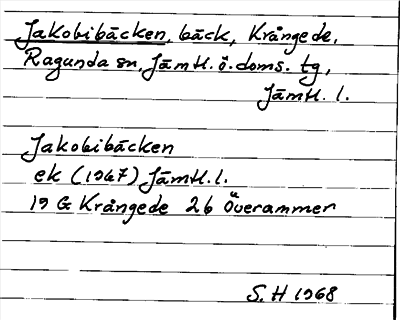 Jakobibäcken, bäck, Krångede,
Ragunda sn, Jämtl. ö. doms. tg,
Jämtl. l.
Jakobibäcken
ek (1967) Jämtl. l.
19 G Krångede 2b Överammer
S. H 1968